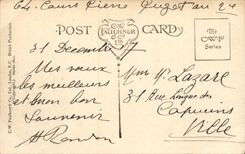 64, Cours Pierre Puget au 2e
POST CARD
C.W. FAULKNER & Co LTD
The C.W.F. Series
C. W. Faulkner & Co., Ltd., London, E.C. British Production.
31 Decembre 17
Mes vœux
les meilleurs
et mon bon
Souvenir
Mme Vve Lazare
31. Rue Longue des
Capucins
Ville